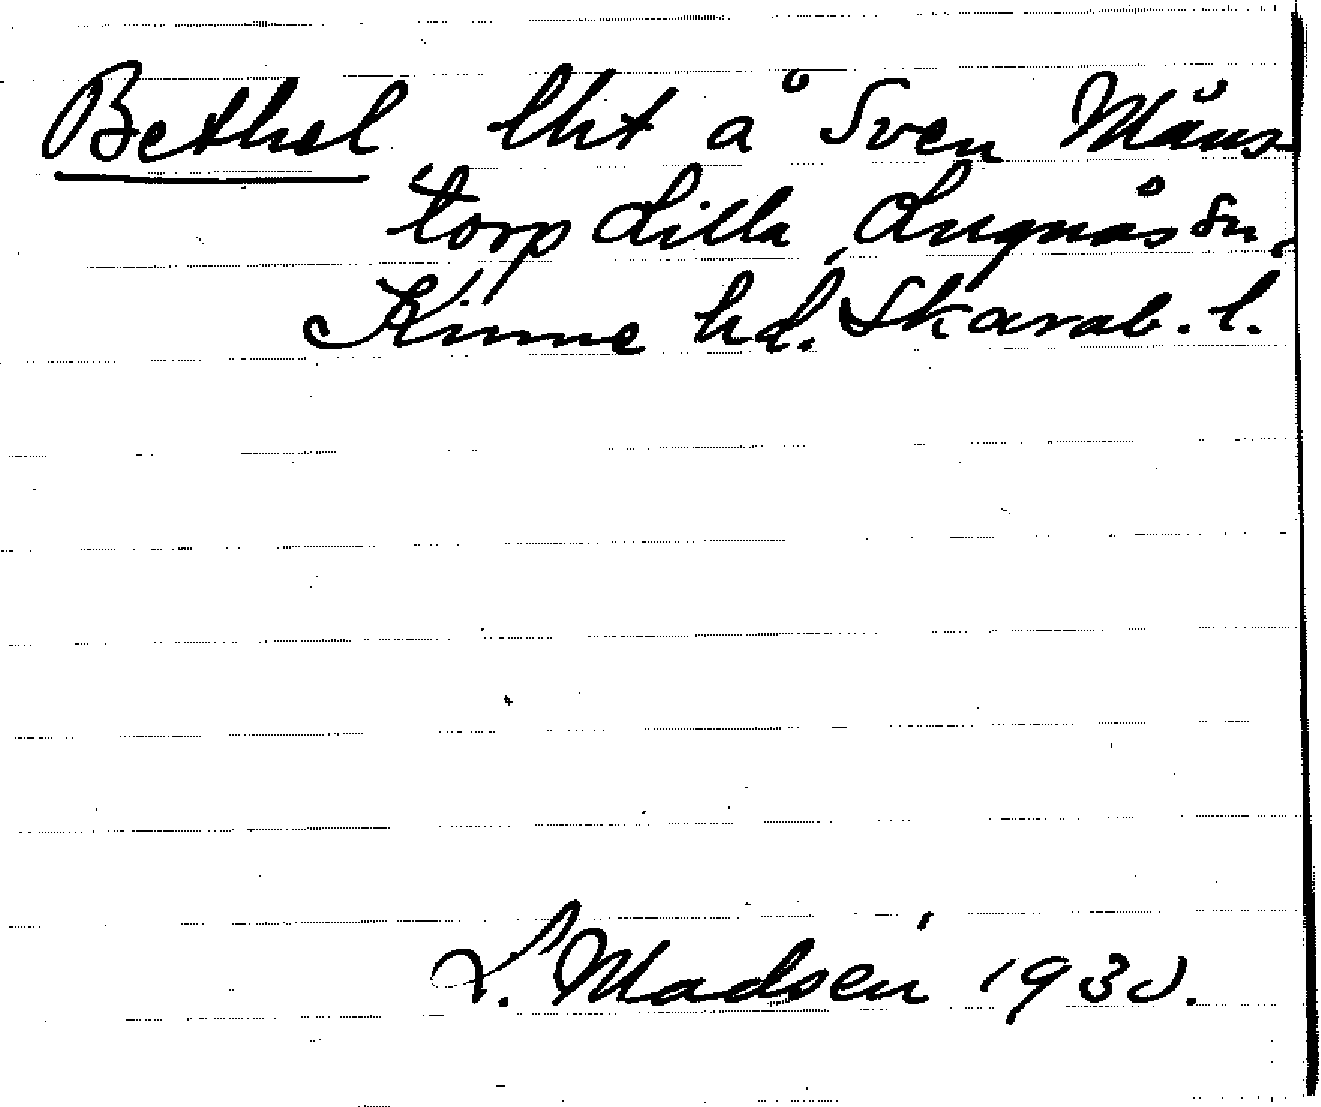 Bethel lht å Sven Måns-
torp Lilla, Lugnås sn,
Kinne hd. Skarab. l.
L. Madsén 1930.